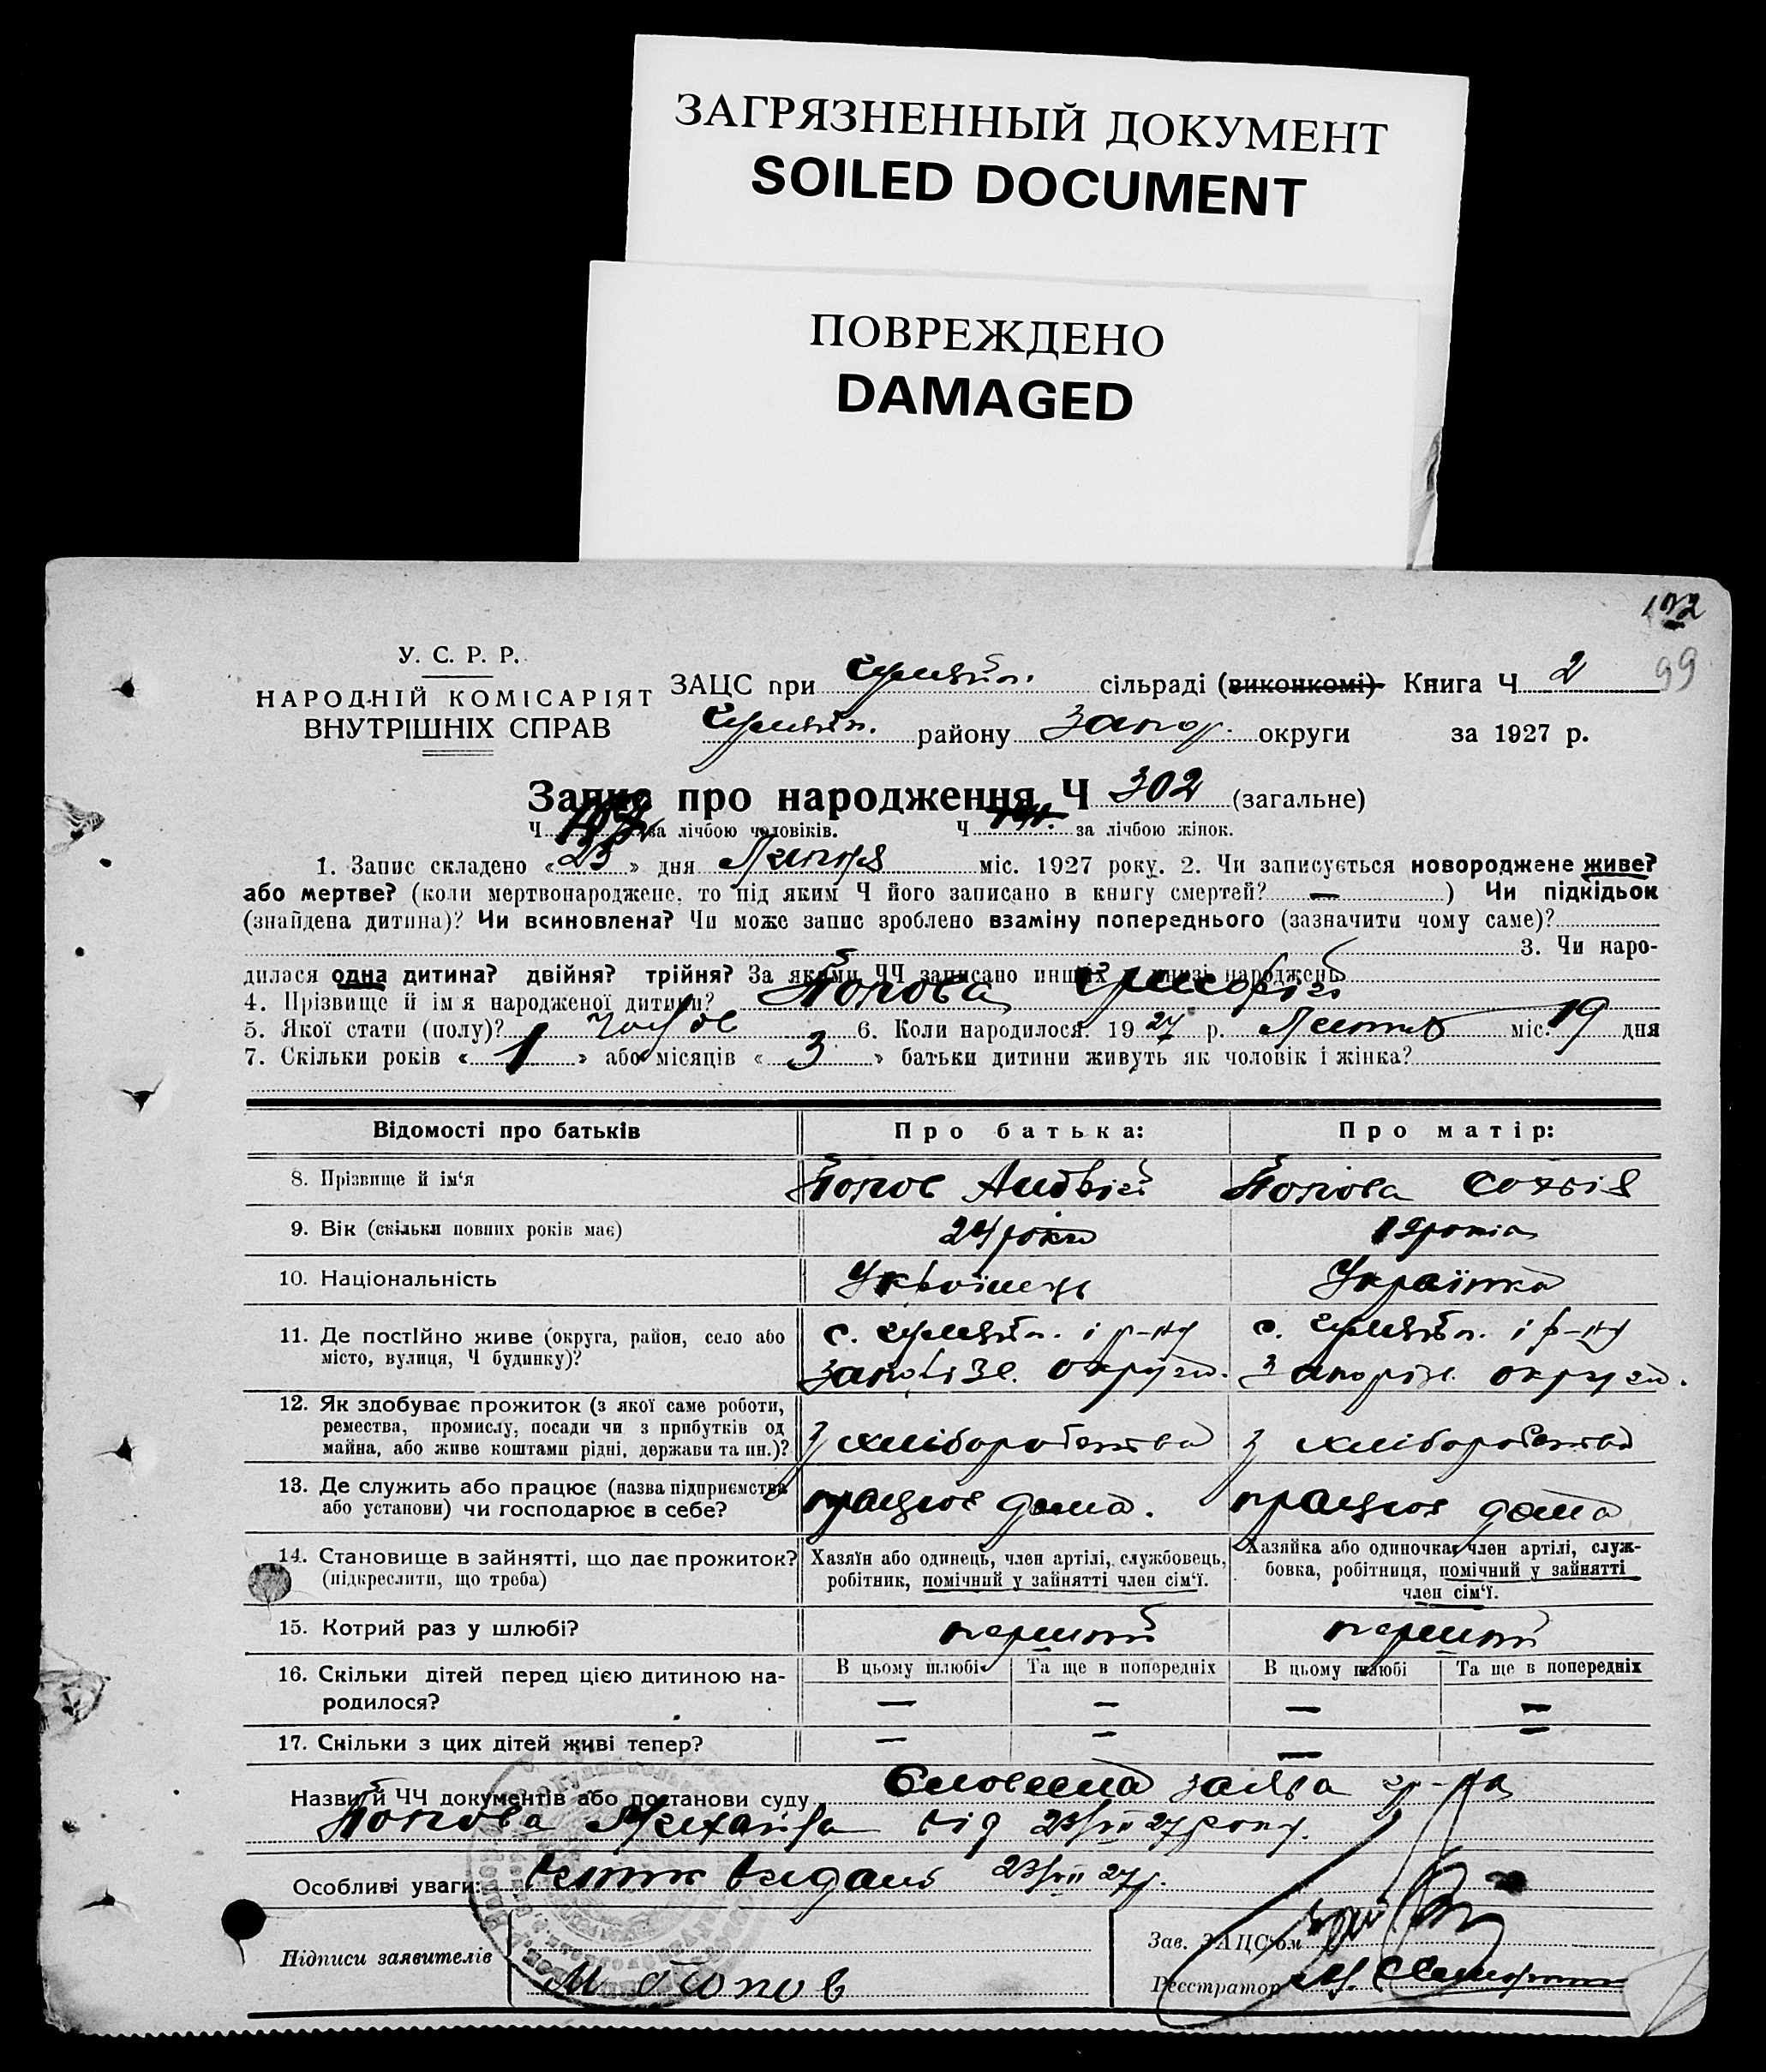 ЗАГРЯЗНЕННЫЙ ДОКУМЕНТ
SOILED DOCUMENT
ПОВРЕЖДЕНО
DAMAGED
99
У. С. Р. Р.
НАРОДНІЙ КОМІСАРІЯТ
ВНУТРІШНІХ СПРАВ
ЗАЦС при сільраді (виконкомі) Книга Ч 2
району Запор. округи за 1927 р.
Запис про народження Ч 302 (загальне)
Ч за лічбою чоловіків. Ч за лічбою жінок.
1. Запис складено « 23 » дня міс. 1927 року. 2. Чи записується новороджене живе?
або мертве? (коли мертвонароджене, то під яким Ч його записано в книгу смертей? — ) Чи підкідьок
(знайдена дитина)? Чи всиновлена? Чи може запис зроблено взаміну попереднього (зазначити чому саме)?
3. Чи наро-
дилася одна дитина? двійня? трійня? За якими ЧЧ записано инших у книзі народжень
4. Прізвище й ім'я народженої дитини? Попов
5. Якої стати (полу)? 6. Коли народилося: 19 27 р. міс. 19 дня
7. Скільки років « 1 » або місяців « 3 » батьки дитини живуть як чоловік і жінка?
Відомості про батьків Про батька: Про матір:
8. Прізвище й ім'я Попов Андрій Попова Софія
9. Вік (скільки повних років має) 24 роки 19 років
10. Національність Українець Українка
11. Де постійно живе (округа, район, село або
місто, вулиця, Ч будинку)?
с. і р-ну с. і р-ну
Запоріз. округи. Запоріз. округи.
12. Як здобуває прожиток (з якої саме роботи,
ремества, промислу, посади чи з прибутків од
майна, або живе коштами рідні, держави та ин.)?
З хліборобства З хліборобства
13. Де служить або працює (назва підприємства
або установи) чи господарює в себе?
працює дома. працює дома
14. Становище в зайнятті, що дає прожиток?
(підкреслити, що треба)
Хазяїн або одинець, член артілі, службовець,
робітник, помічний у зайнятті член сім'ї.
Хазяйка або одиночка, член артілі, служ-
бовка, робітниця, помічний у зайнятті
член сім'ї.
15. Котрий раз у шлюбі? перший перший
16. Скільки дітей перед цією дитиною на-
родилося?
В цьому шлюбі Та ще в попередніх В цьому шлюбі Та ще в попередніх
— — — —
17. Скільки з цих дітей живі тепер? — — — —
Назви й ЧЧ документів або постанови суду Словесна заява гр-на
Попова Михайла від 23/VII 27 року.
Особливі уваги: Витяг видано 23/VII 27р.
Підписи заявителів
М Попов
Зав. ЗАЦС'ом
Реєстратор